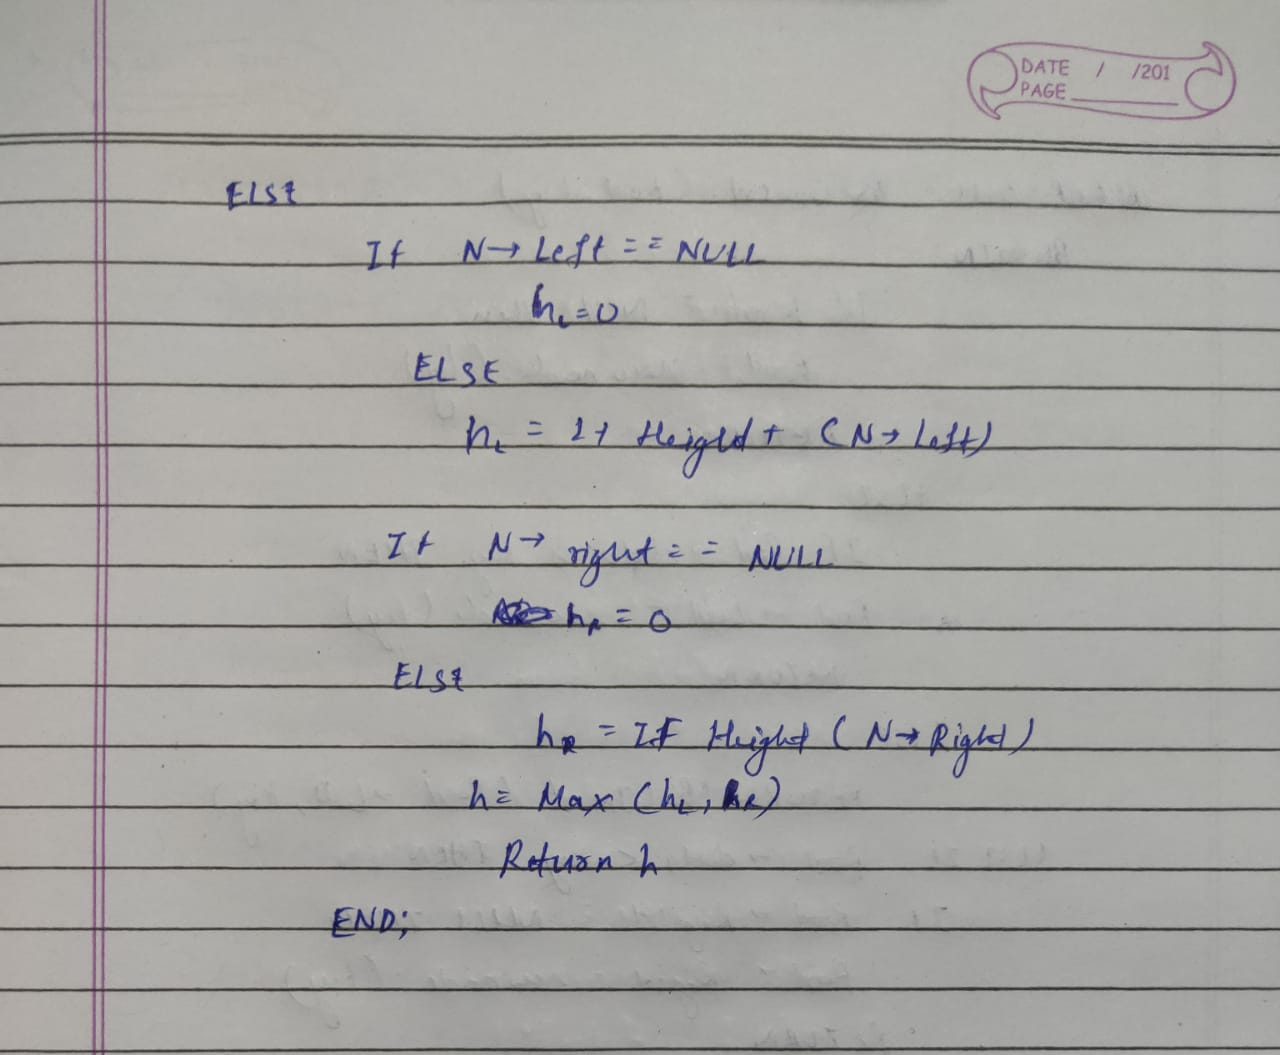 DATE / /201
PAGE
ELSE
If N→ Left == NULL
hL=0
ELSE
hL = 1+ Height + (N→ Left)
If N→ right == NULL
hR = 0
ELSE
hR = If Height (N→ Right)
h= Max (hL, hR)
Return h
END;